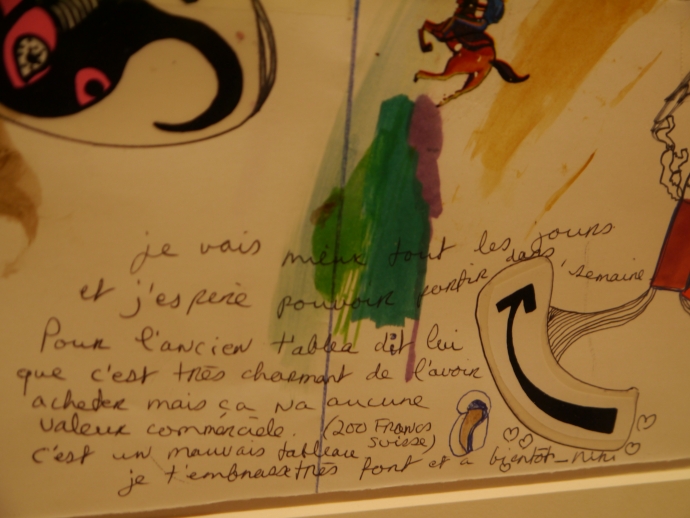 je vais mieux tout les jours
et j'espère pouvoir sortir dans 1 semaine
Pour l'ancien tablea dit lui
que c'est très charmant de l'avoir
acheter mais ça na aucune
valeur commerciale. (200 Francs
suisse)
c'est un mauvais tableau
je t'embrasse très fort et a bientot_Niki